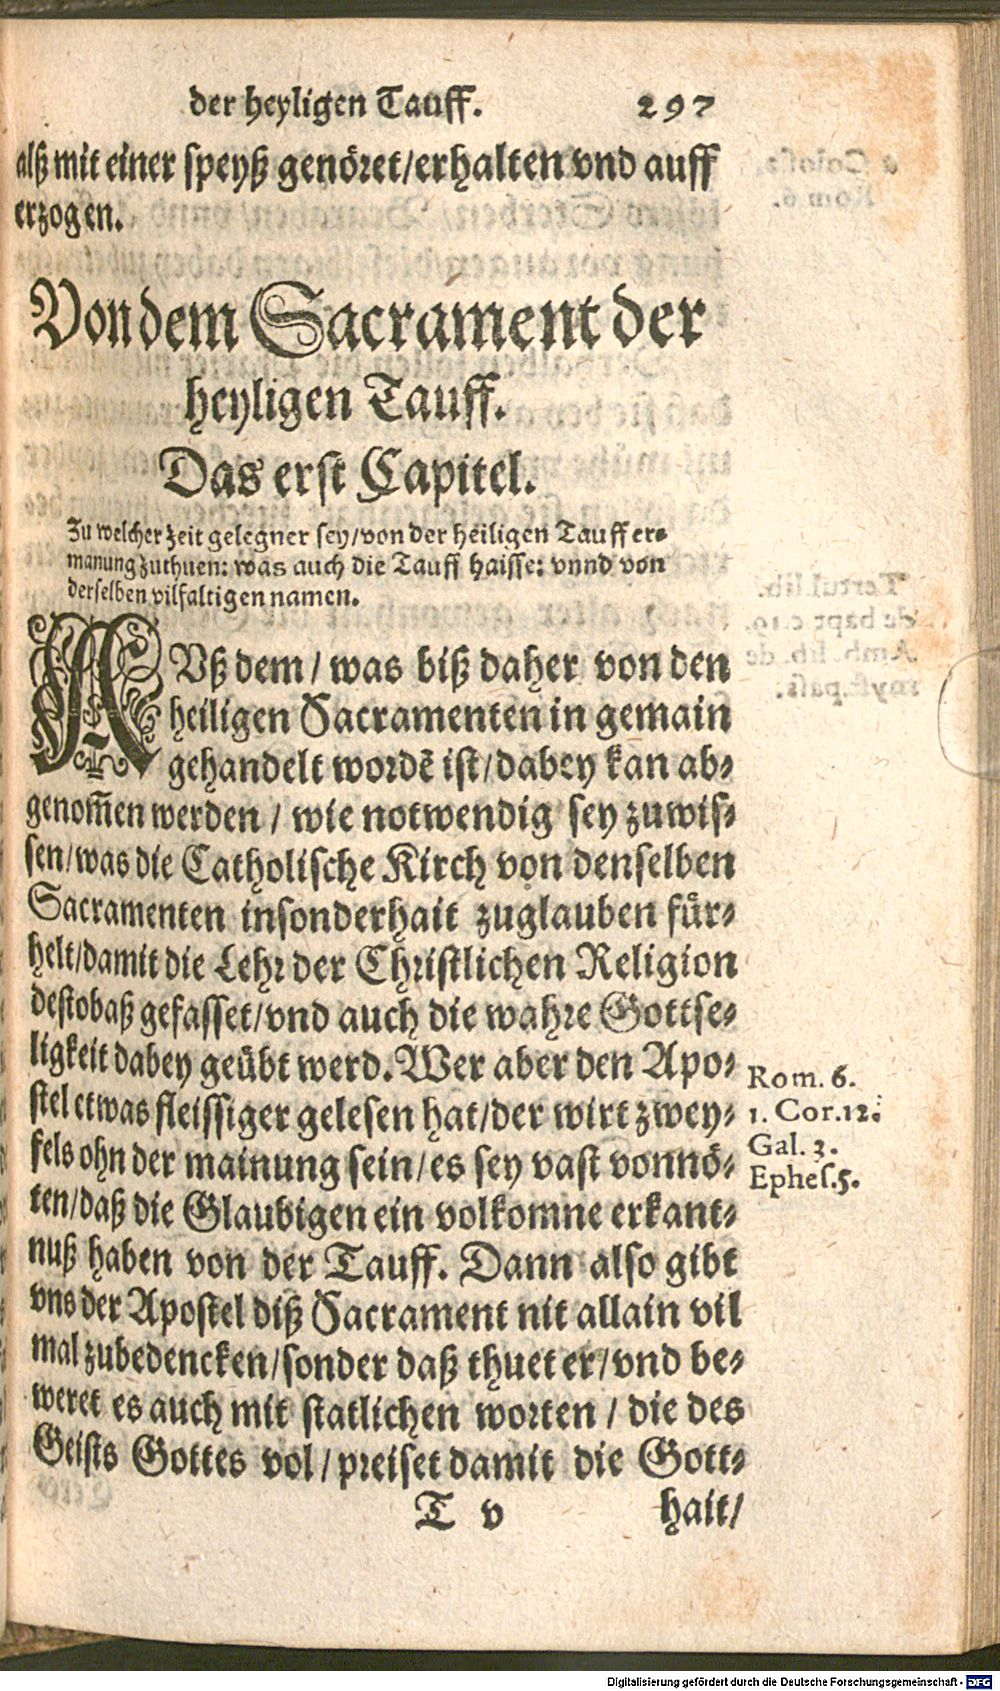 der heyligen Tauff. 297
alß mit einer speyß genöret/erhalten vnd auff
erzogen.
Von dem Sacrament der
heyligen Tauff.
Das erst Capitel.
Zu welcher zeit gelegner sey/von der heiligen Tauff er-
manung zuthuen: was auch die Tauff haisse: vnnd von
derselben vilfaltigen namen.
AVß dem/ was biß daher von den
heiligen Sacramenten in gemain
gehandelt wordē ist/dabey kan ab-
genom̄en werden/ wie notwendig sey zuwis-
sen/was die Catholische Kirch von denselben
Sacramenten insonderhait zuglauben für-
helt/damit die Lehr der Christlichen Religion
destobaß gefasset/vnd auch die wahre Gottse-
ligkeit dabey geübt werd. Wer aber den Apo-
stel etwas fleissiger gelesen hat/der wirt zwey-
fels ohn der mainung sein/es sey vast vonnö-
ten/daß die Glaubigen ein volkomne erkant-
nuß haben von der Tauff. Dann also gibt
vns der Apostel diß Sacrament nit allain vil
mal zubedencken/sonder daß thuet er/vnd be-
weret es auch mit statlichen worten/ die des
Geists Gottes vol/ preiset damit die Gott-
T v hait/
Rom. 6.
1. Cor.12.
Gal. 3.
Ephes.5.
Digitalisierung gefördert durch die Deutsche Forschungsgemeinschaft - DFG